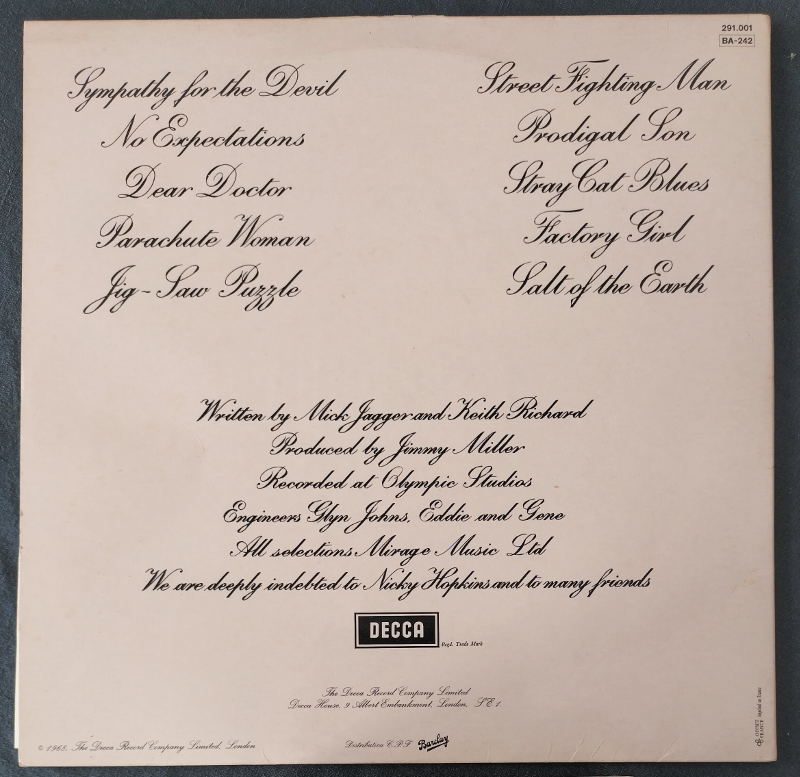 291.001
BA-242
Sympathy for the Devil
No Expectations
Dear Doctor
Parachute Woman
Jig-Saw Puzzle
Street Fighting Man
Prodigal Son
Stray Cat Blues
Factory Girl
Salt of the Earth
Written by Mick Jagger and Keith Richard
Produced by Jimmy Miller
Recorded at Olympic Studios
Engineers Glyn Johns, Eddie and Gene
All selections Mirage Music Ltd
We are deeply indebted to Nicky Hopkins and to many friends
DECCA
Regd. Trade Mark
The Decca Record Company Limited
Decca House, 9 Albert Embankment, London, S.E.1.
© 1968, The Decca Record Company Limited, London
Distribution C.P.F. Barclay